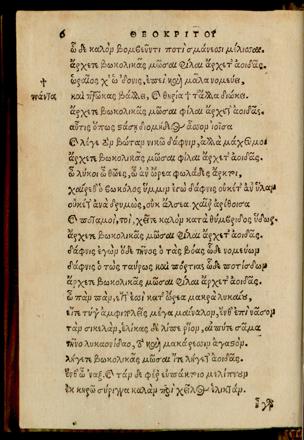 6 ΘΕΟΚΡΙΤΟΥ
ὧ δὲ καλὸν βομβεῦντι ποτὶ σμάνεσσι μέλισσαι.
ἄρχετε βωκολικᾶς μῶσαι φίλαι ἄρχετ' ἀοιδᾶς.
ὡραῖος χ' ὥδωνις, ἐπεὶ καὶ μᾶλα νομεύει,
†
πάντα
καὶ πτῶκας βάλλει, καὶ θηρία † τἄλλα διώκει.
ἄρχετε βωκολικᾶς μῶσαι φίλαι ἄρχετ' ἀοιδᾶς.
αὖτις ὅπως στασῇ διομήδεος ἆσσον ἰοῖσα
καὶ λέγε τὸν βώταν νικῶ δάφνιν, ἀλλὰ μάχευ μοι
ἄρχετε βωκολικᾶς μῶσαι φίλαι ἄρχετ' ἀοιδᾶς.
ὦ λύκοι ὦ θῶες, ὦ ἀν' ὤρεα φωλάδες ἄρκτοι,
χαίρεθ' ὁ βωκόλος ὔμμιν ἐγὼ δάφνις οὐκέτ' ἀν' ὕλαν
οὐκέτ' ἀνὰ δρυμώς, οὐκ ἄλσεα χαῖρ' ἀρέθοισα
καὶ ποταμοί, τοὶ χεῖτε καλὸν κατὰ θύμβριδος ὕδωρ.
ἄρχετε βωκολικᾶς μῶσαι φίλαι ἄρχετ' ἀοιδᾶς.
δάφνις ἐγὼν ὅδε τῆνος ὁ τὰς βόας ὧδε νομεύων
δάφνις ὁ τὼς ταύρως καὶ πόρτιας ὧδε ποτίσδων
ἄρχετε βωκολικᾶς μῶσαι φίλαι ἄρχετ' ἀοιδᾶς.
ὦ πὰν πάν, εἴτ' ἐσσὶ κατ' ὤρεα μακρὰ λυκαίου,
εἴτε τύγ' ἀμφιπολεῖς μέγα μαίναλον, ἔνθ' ἐπὶ νᾶσον
τὰν σικελάν, ἑλίκας δὲ λίπε ῥίον, αἰπύ τε σᾶμα
τῆνο λυκαονίδαο, τὸ καὶ μακάρεσσιν ἀγαστόν.
λήγετε βωκολικᾶς μῶσαι ἴτε λήγετ' ἀοιδᾶς.
ἔνθ' ὦ 'ναξ καὶ τὰν δὲ φέρ' εὐπάκτοιο μελίπνουν
ἐκ κηρῶ σύριγγα καλὰν περὶ χεῖλος ἑλικτάν.
ἦ γὰρ